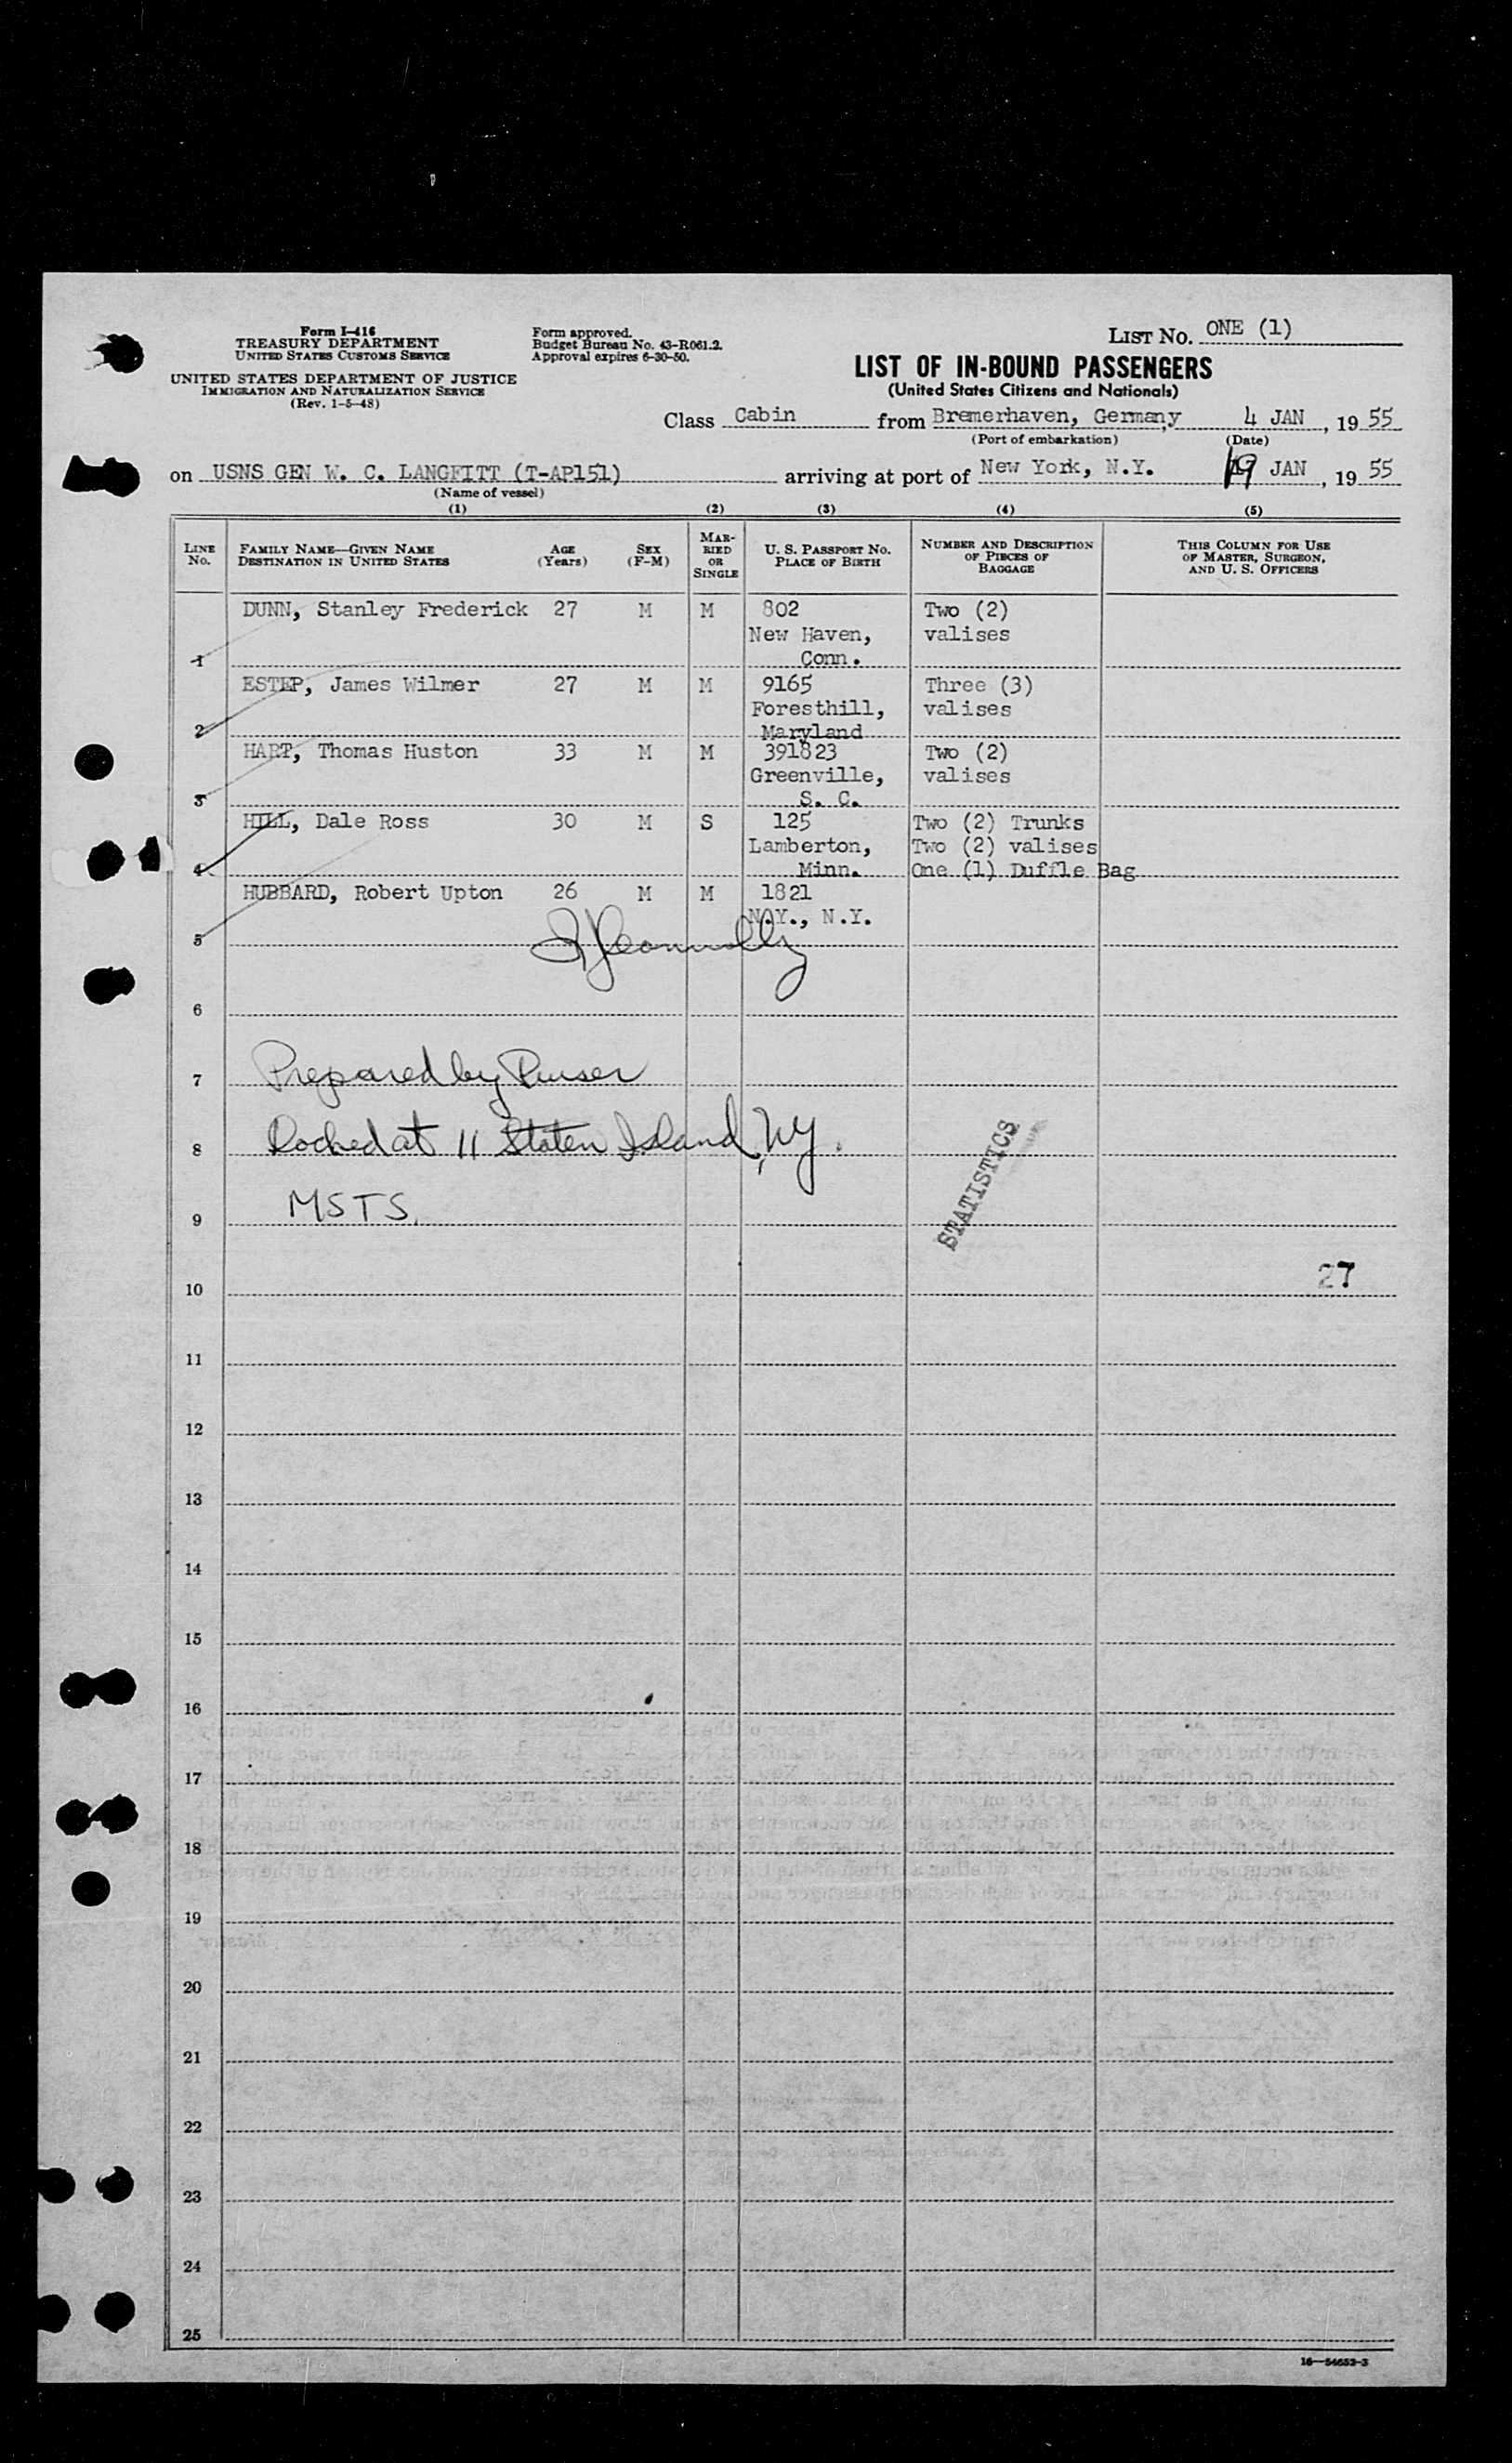 Form I-416
TREASURY DEPARTMENT
UNITED STATES CUSTOMS SERVICE
UNITED STATES DEPARTMENT OF JUSTICE
IMMIGRATION AND NATURALIZATION SERVICE
(Rev. 1-5-48)
Form approved.
Budget Bureau No. 43-R061.2.
Approval expires 6-30-50.
LIST No. ONE (1)
LIST OF IN-BOUND PASSENGERS
(United States Citizens and Nationals)
Class Cabin from Bremerhaven, Germany, 4 JAN, 1955
(Port of embarkation) (Date)
on USNS GEN W. C. LANGFITT (T-AP151) arriving at port of New York, N.Y. 19 JAN, 1955
(Name of vessel)
(1) (2) (3) (4) (5)
LINE No.
FAMILY NAME—GIVEN NAME
DESTINATION IN UNITED STATES
AGE (Years)
SEX (F-M)
MARRIED OR SINGLE
U. S. PASSPORT No.
PLACE OF BIRTH
NUMBER AND DESCRIPTION OF PIECES OF BAGGAGE
THIS COLUMN FOR USE OF MASTER, SURGEON, AND U. S. OFFICERS
DUNN, Stanley Frederick 27 M M 802 Two (2)
New Haven, valises
1 Conn.
ESTEP, James Wilmer 27 M M 9165 Three (3)
Foresthill, valises
2 Maryland
HART, Thomas Huston 33 M M 391823 Two (2)
Greenville, valises
3 S. C.
HILL, Dale Ross 30 M S 125 Two (2) Trunks
Lamberton, Two (2) valises
4 Minn. One (1) Duffle Bag
HUBBARD, Robert Upton 26 M M 1821
N.Y., N.Y.
5
6
7 Prepared by Purser
8 Docked at 11 Staten Island, NY.
STATISTICS
9 MSTS.
27
10
11
12
13
14
15
16
17
18
19
20
21
22
23
24
25
16—54652-3